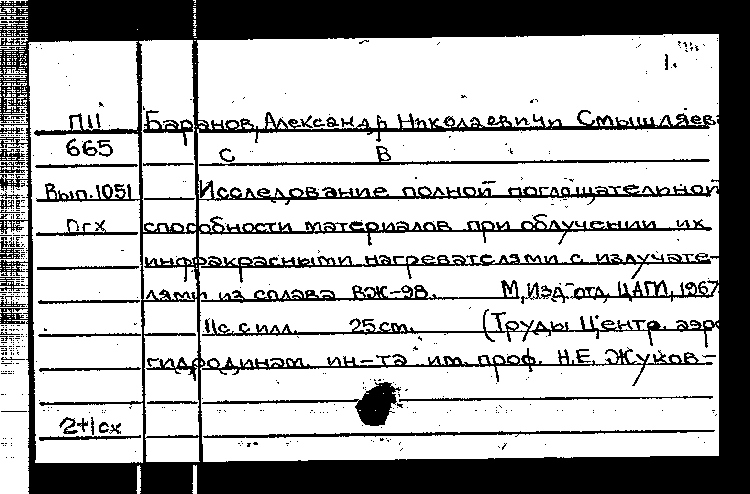 1.
П11 Баранов, Александр Николаевич и Смышляева
665 С В
Вып.1051 Исследование полной поглощательной
пгх способности материалов при облучении их
инфракрасными нагревателями с излучате-
лями из сплава ВЖ-98. М, Изд-отд. ЦАГИ, 1967
11с. с илл. 25 см. (Труды Центр. аэро
гидродинам. ин-та им. проф. Н.Е. Жуков-
2+1сх